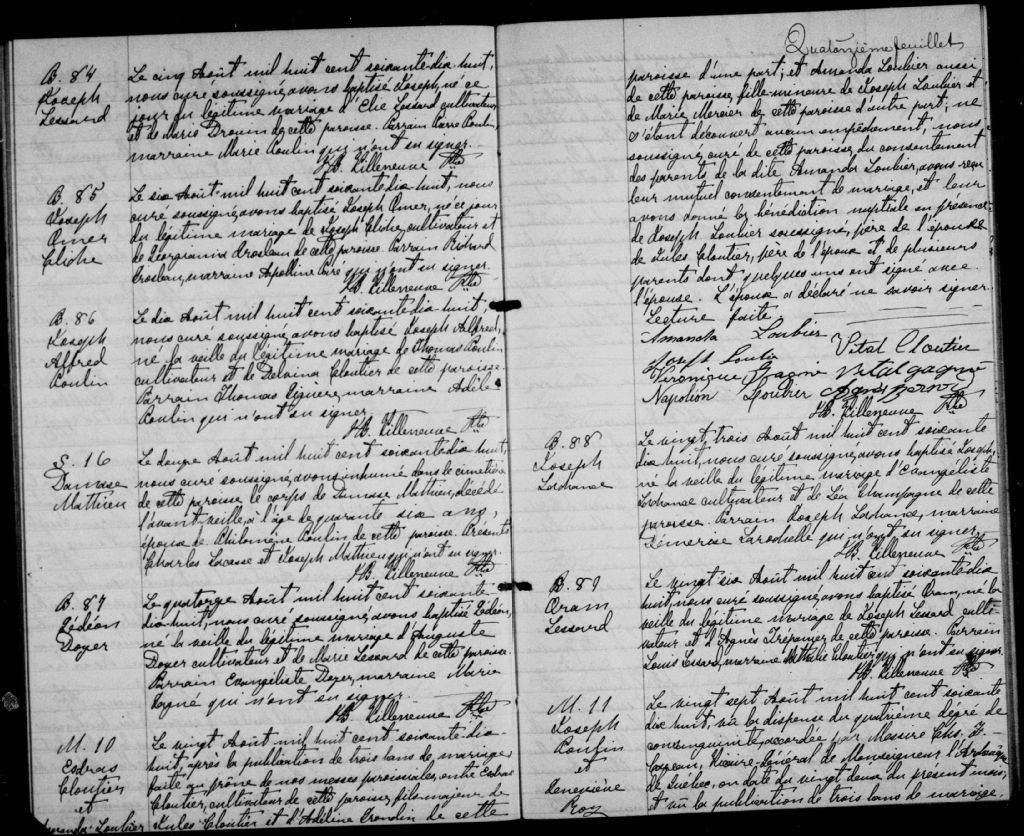 B. 84
Joseph
Lessard
Le cinq Août mil huit cent soixante-dix-huit,
nous curé soussigné, avons baptisé Joseph, né ce
jour du légitime mariage d'Elie Lessard cultivateur
et de Marie Drouin de cette paroisse. Parrain Pierre Poulin,
marraine Marie Poulin qui n'ont su signer.
J.B. Villeneuve Ptre
B. 85
Joseph
Omer
Cliche
Le six Août mil huit cent soixante-dix-huit, nous
curé soussigné, avons baptisé Joseph Omer, né ce jour
du légitime mariage de Joseph Cliche, cultivateur et
de Georgianna de cette paroisse. Parrain Richard
marraine Apolline Paré qui n'ont su signer.
J.B. Villeneuve Ptre
B. 86
Joseph
Alfred
Poulin
Le dix Août mil huit cent soixante-dix-huit,
nous curé soussigné, avons baptisé Joseph Alfred,
né la veille du légitime mariage de Thomas Poulin
cultivateur et de Delvina Cloutier de cette paroisse.
Parrain Thomas marraine Adèle
Poulin qui n'ont su signer.
J.B. Villeneuve Ptre
S. 16
Damase
Mathieu
Le douze Août mil huit cent soixante-dix-huit,
nous curé soussigné, avons inhumé dans le cimetière
de cette paroisse le corps de Damase Mathieu, décédé
l'avant-veille, à l'âge de quarante six ans,
époux de Philomène Poulin de cette paroisse. Présents
Charles Lacasse et Joseph Mathieu qui n'ont su signer.
J.B. Villeneuve Ptre
B. 87
Gédéon
Doyer
Le quatorze Août mil huit cent soixante
dix-huit, nous curé soussigné, avons baptisé Gédéon,
né la veille du légitime mariage d'Auguste
Doyer cultivateur et de Marie Lessard de cette paroisse.
Parrain Evangéliste Doyer, marraine Marie
qui n'ont su signer.
J.B. Villeneuve Ptre
M. 10
Esdras
Cloutier
et
Amanda Loubier
Le vingt Août mil huit cent soixante-dix-
huit, après la publication de trois bans de mariage
faite au prône de nos messes paroissiales, entre Esdras
Cloutier, cultivateur de cette paroisse, fils majeur de
Jules Cloutier et d'Adéline Grondin de cette
Quatorzième feuillet
paroisse d'une part; et Amanda Loubier aussi
de cette paroisse, fille mineure de Joseph Loubier et
de Marie Mercier de cette paroisse d'autre part; ne
s'étant découvert aucun empêchement, nous
soussigné, curé de cette paroisse, du consentement
des parents de la dite Amanda Loubier, avons reçu
leur mutuel consentement de mariage, et leur
avons donné la bénédiction nuptiale en présence
de Joseph Loubier soussigné, père de l'épouse et
de Jules Cloutier, père de l'époux et de plusieurs
parents dont quelques uns ont signé avec
l'épouse. L'époux a déclaré ne savoir signer.
Lecture faite
Amanda Loubier
Vital Cloutier
Joseph Loubier
Véronique Gagné Vital gagné
Napoléon Loubier
J.B. Villeneuve Ptre
B. 88
Joseph
Lachance
Le vingt-trois Août mil huit cent soixante
dix-huit, nous curé soussigné, avons baptisé Joseph,
né la veille du légitime mariage d'Evangéliste
Lachance cultivateur et de Léa Champagne de cette
paroisse. Parrain Joseph Lachance, marraine
Démerise Larochelle qui n'ont su signer.
J.B. Villeneuve Ptre
B. 89
Oram
Lessard
Le vingt-six Août mil huit cent soixante-dix
huit, nous curé soussigné, avons baptisé Oram, né la
veille du légitime mariage de Joseph Lessard culti-
vateur et d'Agnès Trépanger de cette paroisse. Parrain
Louis Lessard, marraine Nathalie Cloutier qui n'ont su signer.
J.B. Villeneuve Ptre
M. 11
Joseph
Poulin
et
Geneviève
Roy
Le vingt sept Août mil huit cent soixante
dix-huit, vu la dispense du quatrième dégré de
consanguinité, accordée par Messire Chs. F.
Cazeau, Vicaire-Général de Monseigneur l'Archevêque
de Québec, en date du vingt deux du présent mois;
et vu la publication de trois bans de mariage,